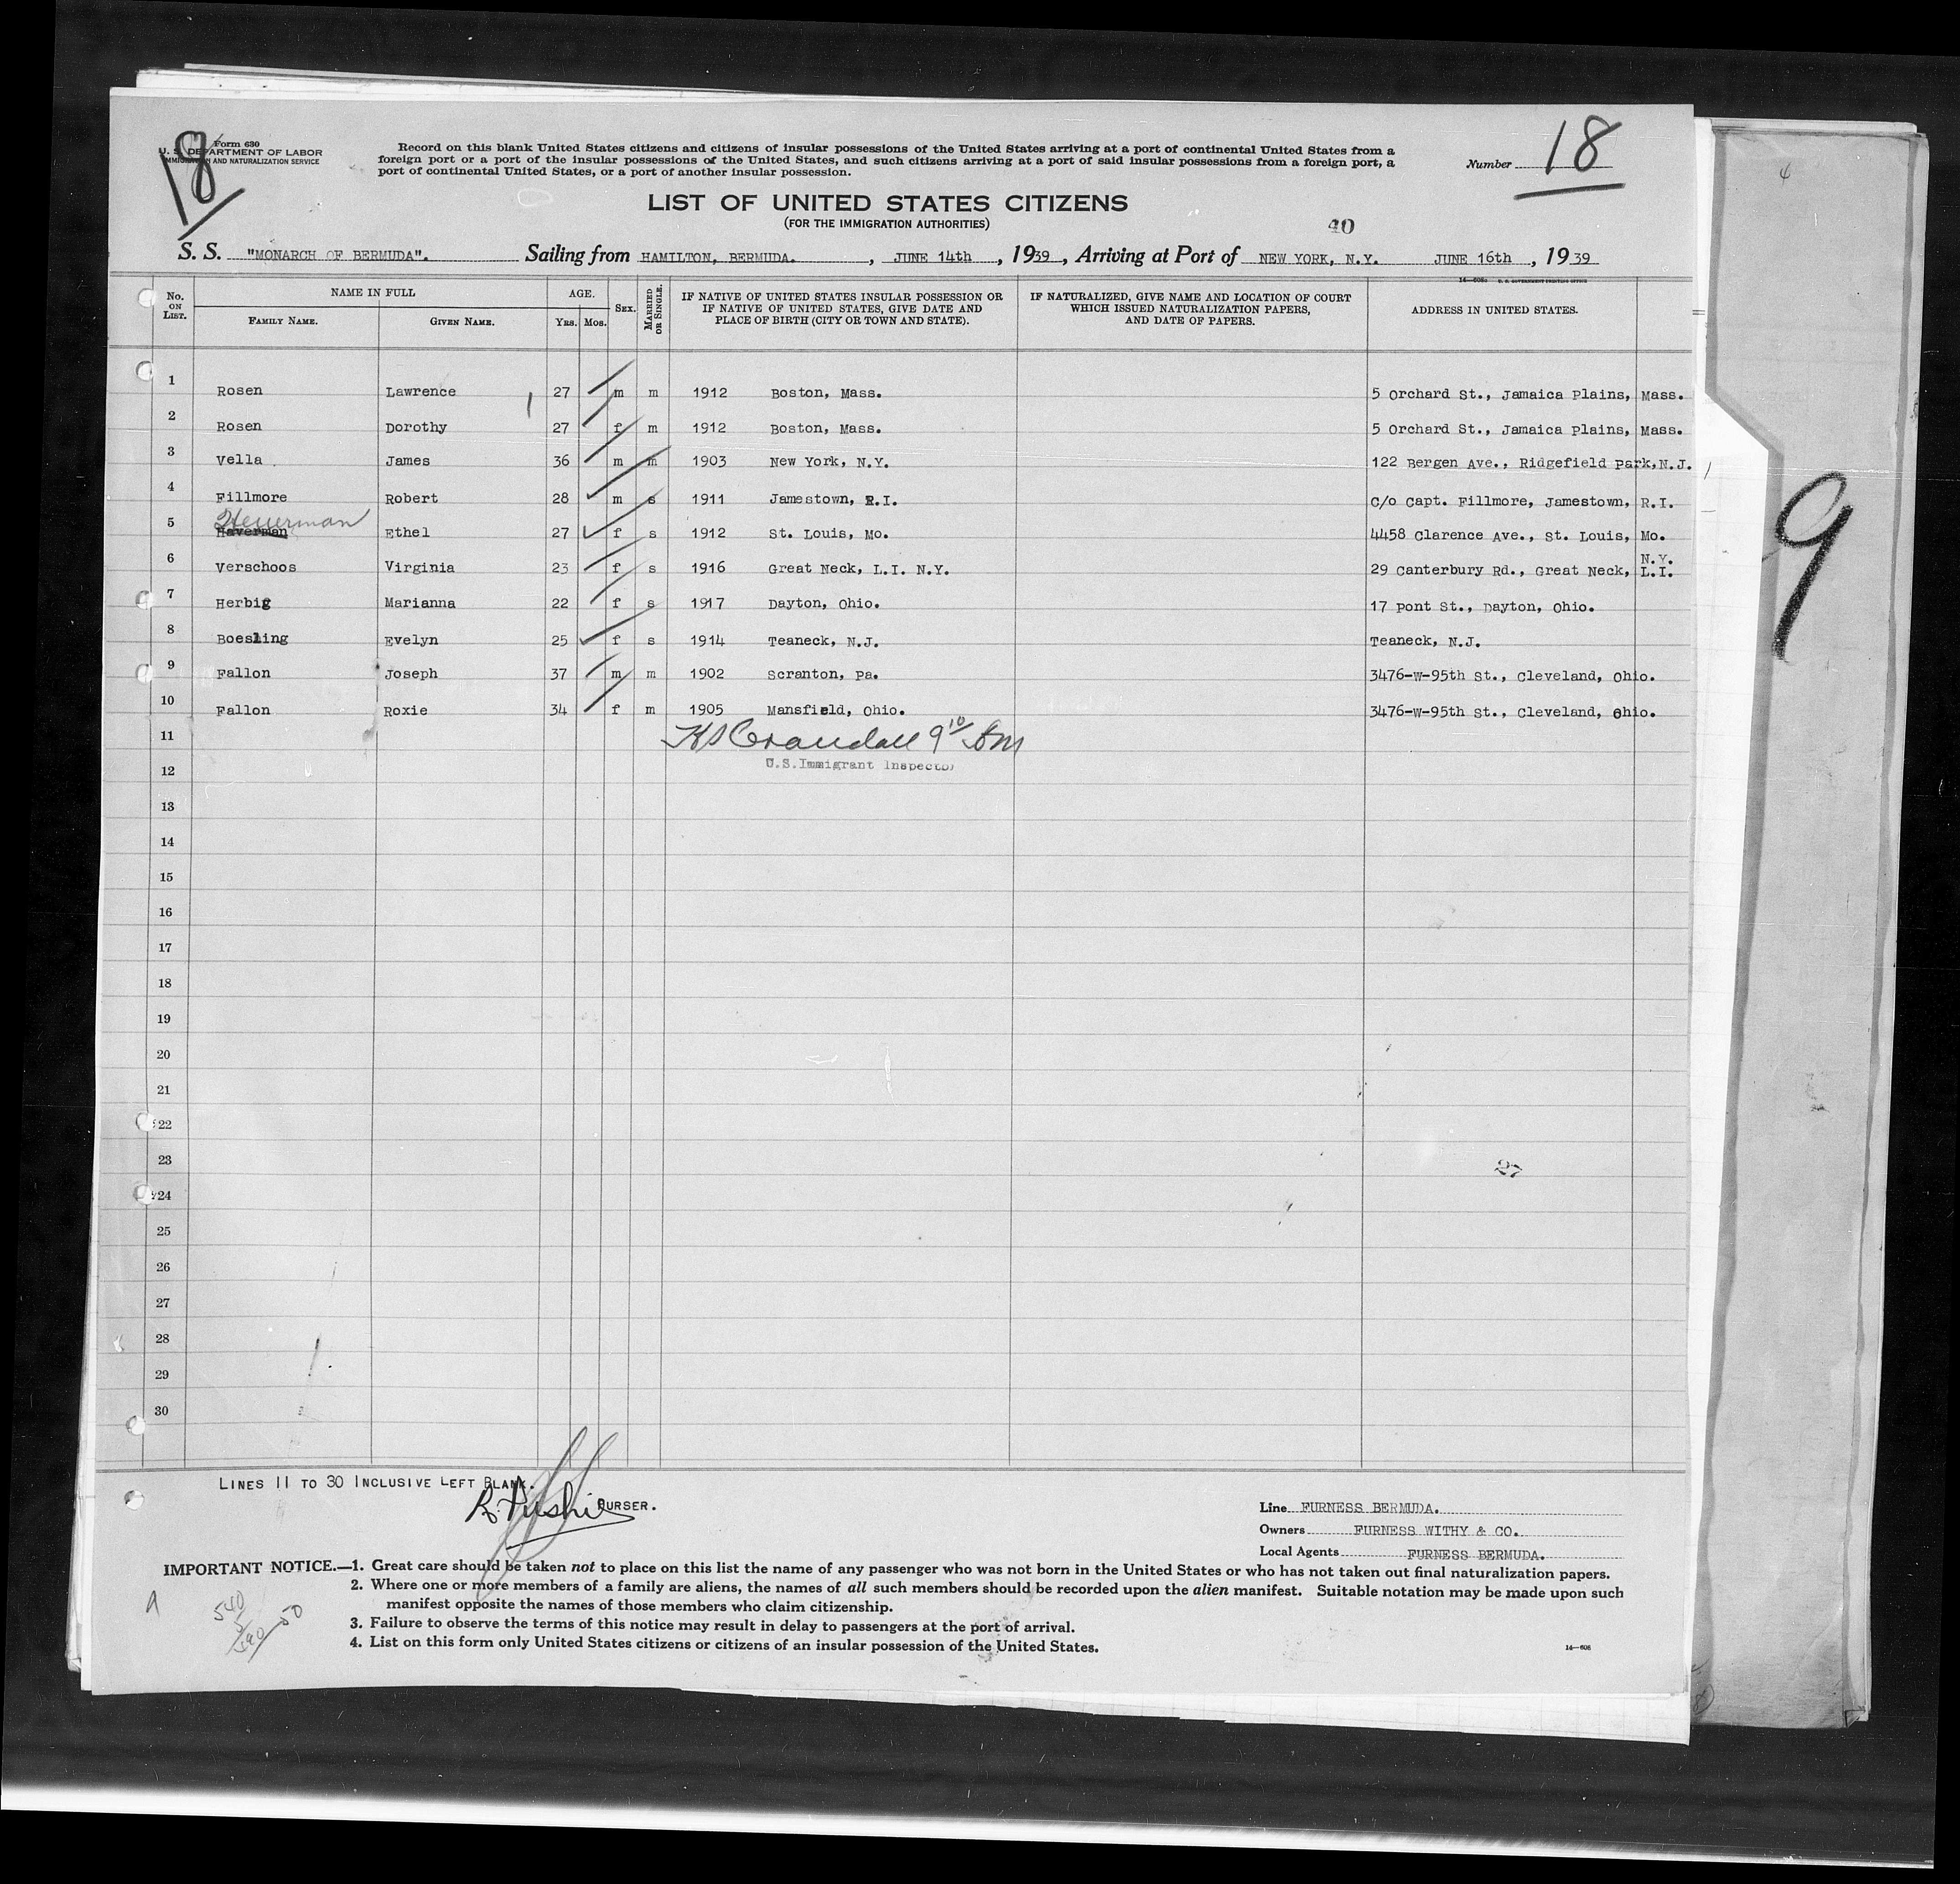 18
Form 630
U. S. DEPARTMENT OF LABOR
IMMIGRATION AND NATURALIZATION SERVICE
Record on this blank United States citizens and citizens of insular possessions of the United States arriving at a port of continental United States from a
foreign port or a port of the insular possessions of the United States, and such citizens arriving at a port of said insular possessions from a foreign port, a
port of continental United States, or a port of another insular possession.
Number 18
LIST OF UNITED STATES CITIZENS
(FOR THE IMMIGRATION AUTHORITIES)
40
S. S. "MONARCH OF BERMUDA". Sailing from HAMILTON, BERMUDA. , JUNE 14th , 1939 , Arriving at Port of NEW YORK, N.Y. JUNE 16th , 1939
No. ON LIST. NAME IN FULL FAMILY NAME. GIVEN NAME. AGE. YRS. MOS. SEX. MARRIED OR SINGLE. IF NATIVE OF UNITED STATES INSULAR POSSESSION OR IF NATIVE OF UNITED STATES, GIVE DATE AND PLACE OF BIRTH (CITY OR TOWN AND STATE). IF NATURALIZED, GIVE NAME AND LOCATION OF COURT WHICH ISSUED NATURALIZATION PAPERS, AND DATE OF PAPERS. ADDRESS IN UNITED STATES.
1 Rosen Lawrence 27 m m 1912 Boston, Mass. 5 Orchard St., Jamaica Plains, Mass.
2 Rosen Dorothy 27 f m 1912 Boston, Mass. 5 Orchard St., Jamaica Plains, Mass.
3 Vella James 36 m m 1903 New York, N.Y. 122 Bergen Ave., Ridgefield Park, N.J.
4 Fillmore Robert 28 m s 1911 Jamestown, R.I. C/o Capt. Fillmore, Jamestown, R.I.
Heuerman
5 Haverman Ethel 27 f s 1912 St. Louis, Mo. 4458 Clarence Ave., St. Louis, Mo.
6 Verschoos Virginia 23 f s 1916 Great Neck, L.I. N.Y. 29 Canterbury Rd., Great Neck, L.I. N.Y.
7 Herbig Marianna 22 f s 1917 Dayton, Ohio. 17 Pont St., Dayton, Ohio.
8 Boesling Evelyn 25 f s 1914 Teaneck, N.J. Teaneck, N.J.
9 Fallon Joseph 37 m m 1902 Scranton, Pa. 3476-W-95th St., Cleveland, Ohio.
10 Fallon Roxie 34 f m 1905 Mansfield, Ohio. 3476-W-95th St., Cleveland, Ohio.
11 Crandall 9 10 Am
12 U.S.Immigrant Inspector
13
14
15
16
17
18
19
20
21
22
23
27
24
25
26
27
28
29
30
LINES 11 TO 30 INCLUSIVE LEFT BLANK.
PURSER.
Line FURNESS BERMUDA.
Owners FURNESS WITHY & CO.
Local Agents FURNESS BERMUDA.
IMPORTANT NOTICE.—1. Great care should be taken not to place on this list the name of any passenger who was not born in the United States or who has not taken out final naturalization papers.
2. Where one or more members of a family are aliens, the names of all such members should be recorded upon the alien manifest. Suitable notation may be made upon such
manifest opposite the names of those members who claim citizenship.
3. Failure to observe the terms of this notice may result in delay to passengers at the port of arrival.
4. List on this form only United States citizens or citizens of an insular possession of the United States.
14—606
540
50
9